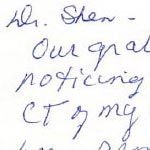 Dr. Shen -
Our grat
noticing
CT of my